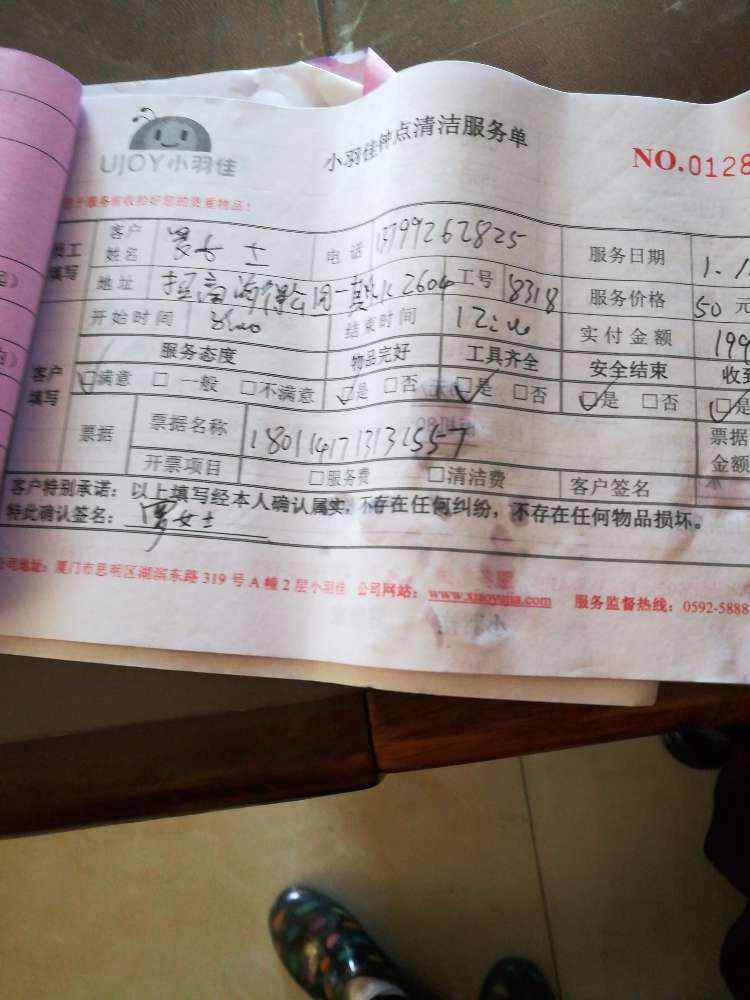 UJOY小羽佳
小羽佳钟点清洁服务单
NO.0128
服务前收拾好您的贵重物品!
员工填写 客户姓名 女士 电话 13799262825 服务日期 1.1
地址 2604 工号 8318 服务价格 50元
开始时间 结束时间 12:00 实付金额 199
客户填写 服务态度 物品完好 工具齐全 安全结束 收到
☑满意 □一般 □不满意 ☑是 □否 ☑是 □否 ☑是 □否 ☑是
票据 票据名称 票据金额
开票项目 □服务费 □清洁费 客户签名
客户特别承诺:以上填写经本人确认属实,不存在任何纠纷,不存在任何物品损坏。
特此确认签名: 罗女士
公司地址:厦门市思明区湖滨东路319号A幢2层小羽佳 公司网站:www.xiaoyujia.com 服务监督热线:0592-5888